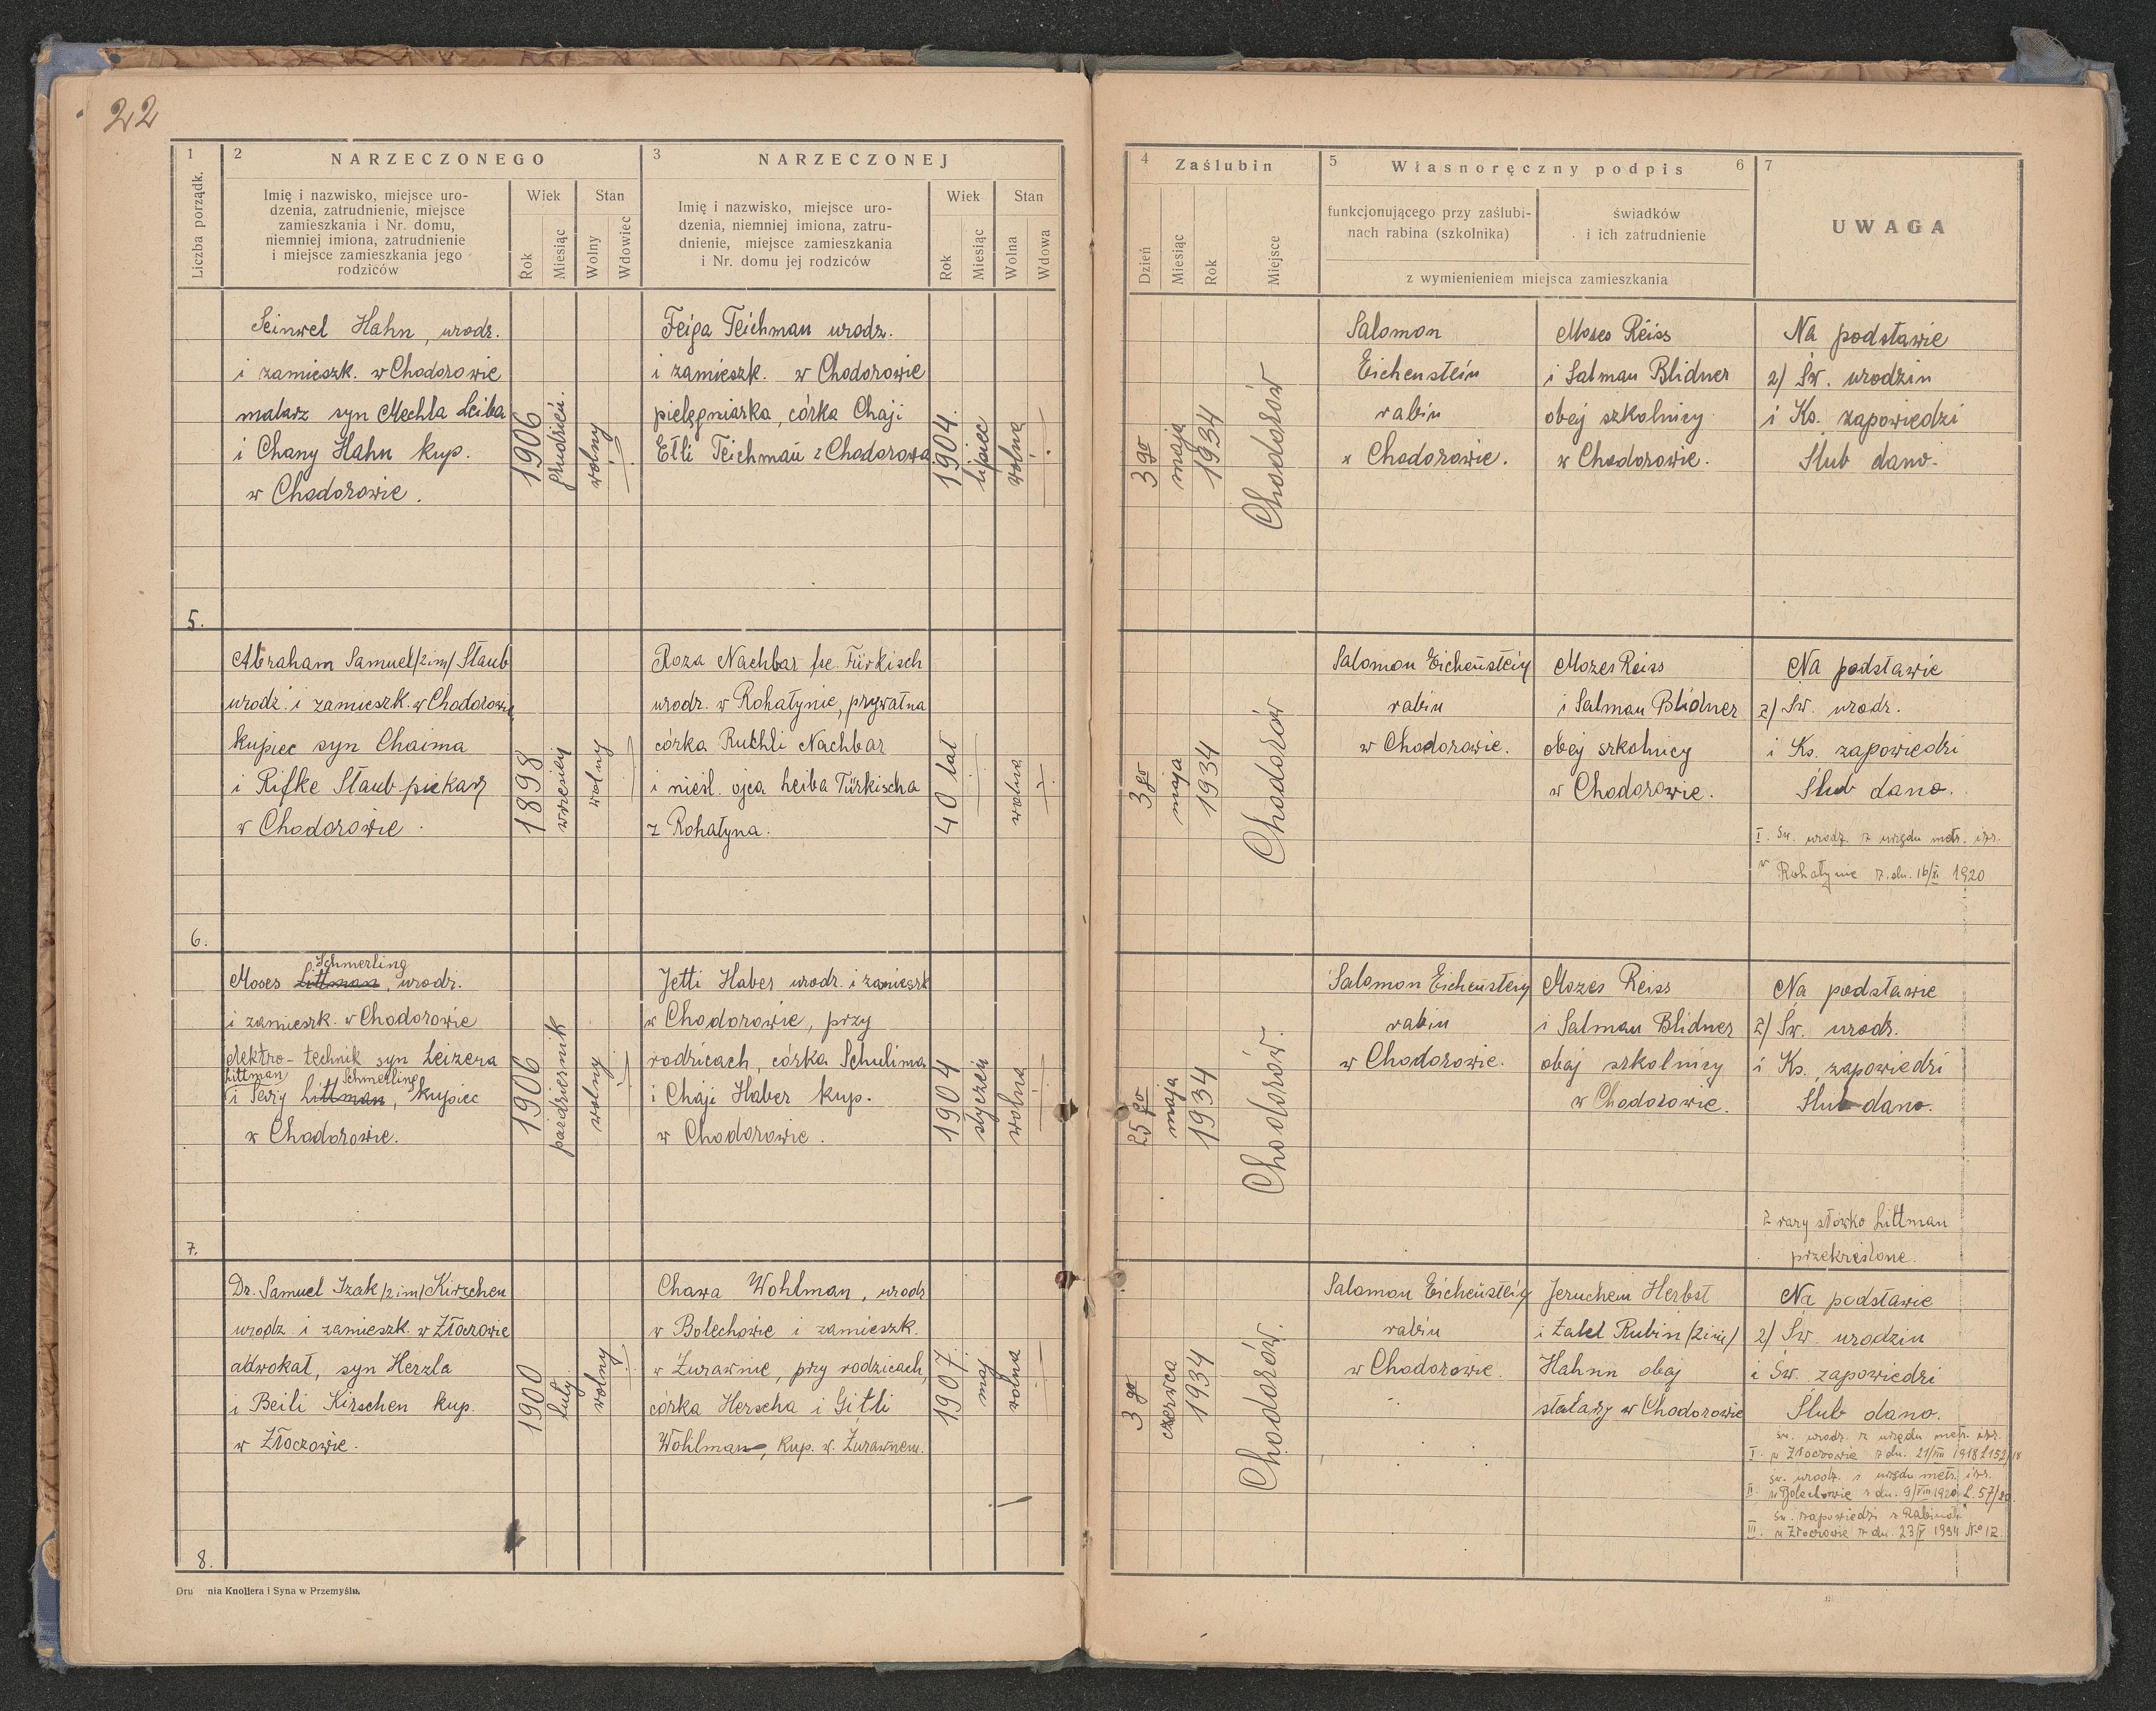 22
1
Liczba porządk.
2
NARZECZONEGO
Imię i nazwisko, miejsce uro-
dzenia, zatrudnienie, miejsce
zamieszkania i Nr. domu,
niemniej imiona, zatrudnienie
i miejsce zamieszkania jego
rodziców
Wiek
Rok
Miesiąc
Stan
Wolny
Wdowiec
3
NARZECZONEJ
Imię i nazwisko, miejsce uro-
dzenia, niemniej imiona, zatru-
dnienie, miejsce zamieszkania
i Nr. domu jej rodziców
Wiek
Rok
Miesiąc
Stan
Wolna
Wdowa
4
Zaślubin
Dzień
Miesiąc
Rok
Miejsce
5
Własnoręczny podpis
6
funkcjonującego przy zaślubi-
nach rabina (szkolnika)
świadków
i ich zatrudnienie
z wymienieniem miejsca zamieszkania
7
UWAGA
5.
Seinwel Hahn, urodz.
i zamieszk. w Chodorowie
malarz syn Mechla Leiba
i Chany Hahn kup.
w Chodorowie.
1906
grudzień.
wolny
Feiga Teichman urodz.
i zamieszk. w Chodorowie
pielęgniarka, córka Chaji
Etli Teichman z Chodorowa
1904.
lipiec
wolna
3go
maja
1934
Chodorów
Salomon
Eichenstein
rabin
w Chodorowie.
Moses Reiss
i Salman Blidner
obej szkolnicy
w Chodorowie.
Na podstawie
2) Św. urodzin
i Ks. zapowiedzi
Ślub dano.
6.
Abraham Samuel /2im/ Staub
urodz. i zamieszk. w Chodorowie
kupiec syn Chaima
i Rifke Staub piekarz
w Chodorowie.
1898
wrzesień
wolny
Roza Nachbar fse. Türkisch
urodz. w Rohatynie, prywatna
córka Ruchli Nachbar
i nieśl. ojca Leiba Türkischa
z Rohatyna.
40 lat
wolna
3go
maja
1934
Chodorów
Salomon Eichenstein
rabin
w Chodorowie.
Mozes Reiss
i Salman Blidner
obej szkolnicy
w Chodorowie.
Na podstawie
2) Św. urodz.
i Ks. zapowiedzi
Ślub dano.
I. Św. urodz. z urzędu metr. izr.
w Rohatynie z dn. 16/XI 1920
7.
Schmerling
Moses Littman, urodz.
i zamieszk. w Chodorowie
elektro-technik syn Leizera
Littman Schmerling
i Sary Littman, kupiec
w Chodorowie.
1906
październik
wolny
Jetti Haber urodz. i zamieszk
w Chodorowie, przy
rodzicach, córka Schulima
i Chaji Haber kup.
w Chodorowie.
1904
styczeń
wolna
25 go
maja
1934
Chodorów.
Salomon Eichenstein
rabin
w Chodorowie.
Mozes Reiss
i Salman Blidner
obaj szkolnicy
w Chodorowie.
Na podstawie
2) Św. urodz.
i Ks. zapowiedzi
Ślub dano.
2 razy słówko Littman
przekreślone.
8.
Dr. Samuel Izak /2im/ Kirschen
urodz i zamieszk. w Złoczowie
adwokat, syn Herzla
i Beili Kirschen kup.
w Złoczowie.
1900
luty
wolny
Chawa Wohlman, urodz
w Bolechowie i zamieszk.
w Żurawnie, przy rodzicach,
córka Herscha i Gitli
Wohlman, kup. w. Żurawnem.
1907
maj
wolna
3 go
czerwca
1934
Chodorów.
Salomon Eichenstein
rabin
w Chodorowie.
Jeruchem Herbst
i Zalel Rubin /2im/
Hahnn obaj
w Chodorowie
Na podstawie
2) Św. urodzin
i Św. zapowiedzi
Ślub dano.
św. urodz. z urzędu metr. izr.
I. w Złoczowie z dn. 21/VIII 1918 L152/18
św. urodz. z urzędu metr. izr.
II. w Bolechowie z dn. 9/VIII 1920 L. 57/20.
św. zapowiedzi z Rabinatu
III. w Złoczowie z dn. 23/V 1934 No 12.
Dru nia Knollera i Syna w Przemyślu.